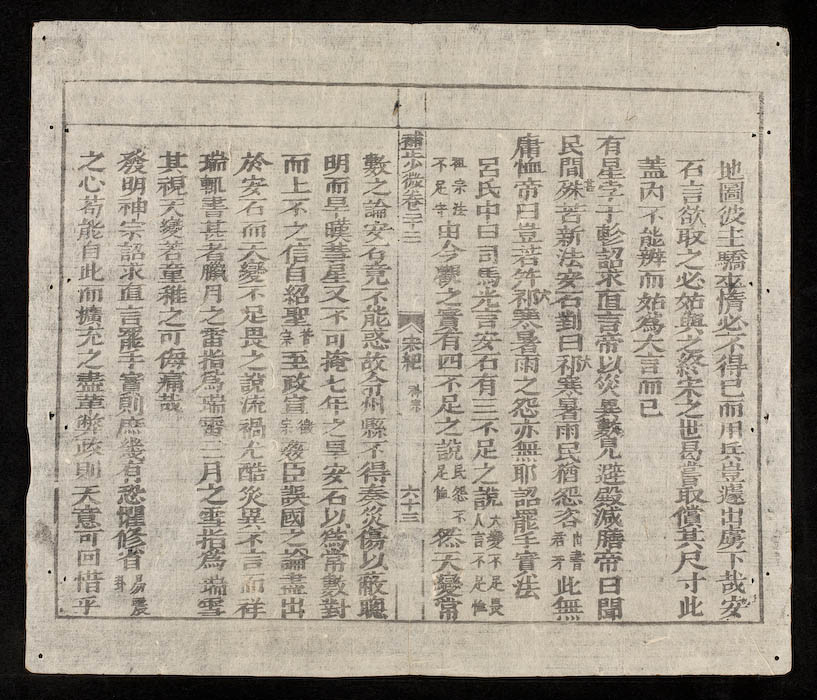 地圖彼主驕來惰必不得已而用兵豈遽出虜下哉安
石言欲取之必姑與之終宋之世曷嘗取償其尺寸此
蓋內不能辨而姑為大言而已
有星孛于軫詔求直言帝以災異數見避殿減膳帝曰聞
民間殊苦新法安石對曰祁寒暑雨民猶怨咨此無
庸恤帝曰豈若并祁寒暑雨之怨亦無耶詔罷手實法
呂氏中曰司馬光言安石有三不足之說天變不足畏人言不足恤
祖宗法不足守由今觀之實有四不足之說民怨不足恤然天變常
補正少微卷二十二 宋紀 神宗 六十三
數之論安石竟不能惑故令州縣不得奏災傷以蔽聰
明而旱暵彗星又不可掩七年之旱安石以為常數對
而上不之信自紹聖哲宗至政宣徽宗姦臣誤國之論盡出
於安石而天變不足畏之說流禍尤酷災異不言而祥
瑞輒書甚者臘月之雷指為瑞雷三月之雪指為瑞雪
其視天變若童稚之可侮痛哉
發明神宗詔求直言罷手實則庶幾有恐懼修省易震卦
之心苟能自此而擴充之盡革弊政則天意可回惜乎